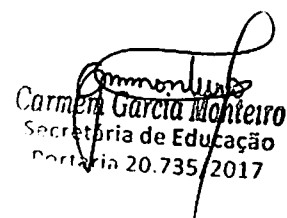 Carmem Garcia Monteiro
Secretária de Educação
Portaria 20.735/2017